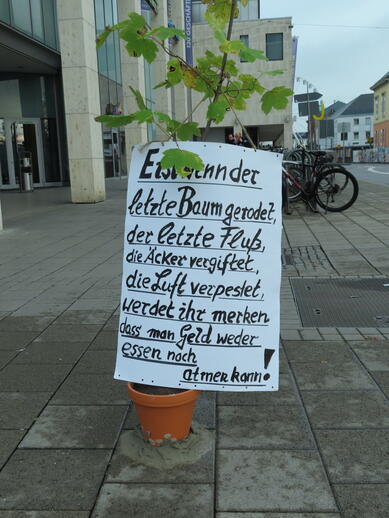 Erst wenn der
letzte Baum gerodet,
der letzte Fluß,
die Äcker vergiftet,
die Luft verpestet,
werdet ihr merken
dass man Geld weder
essen noch
atmen kann!